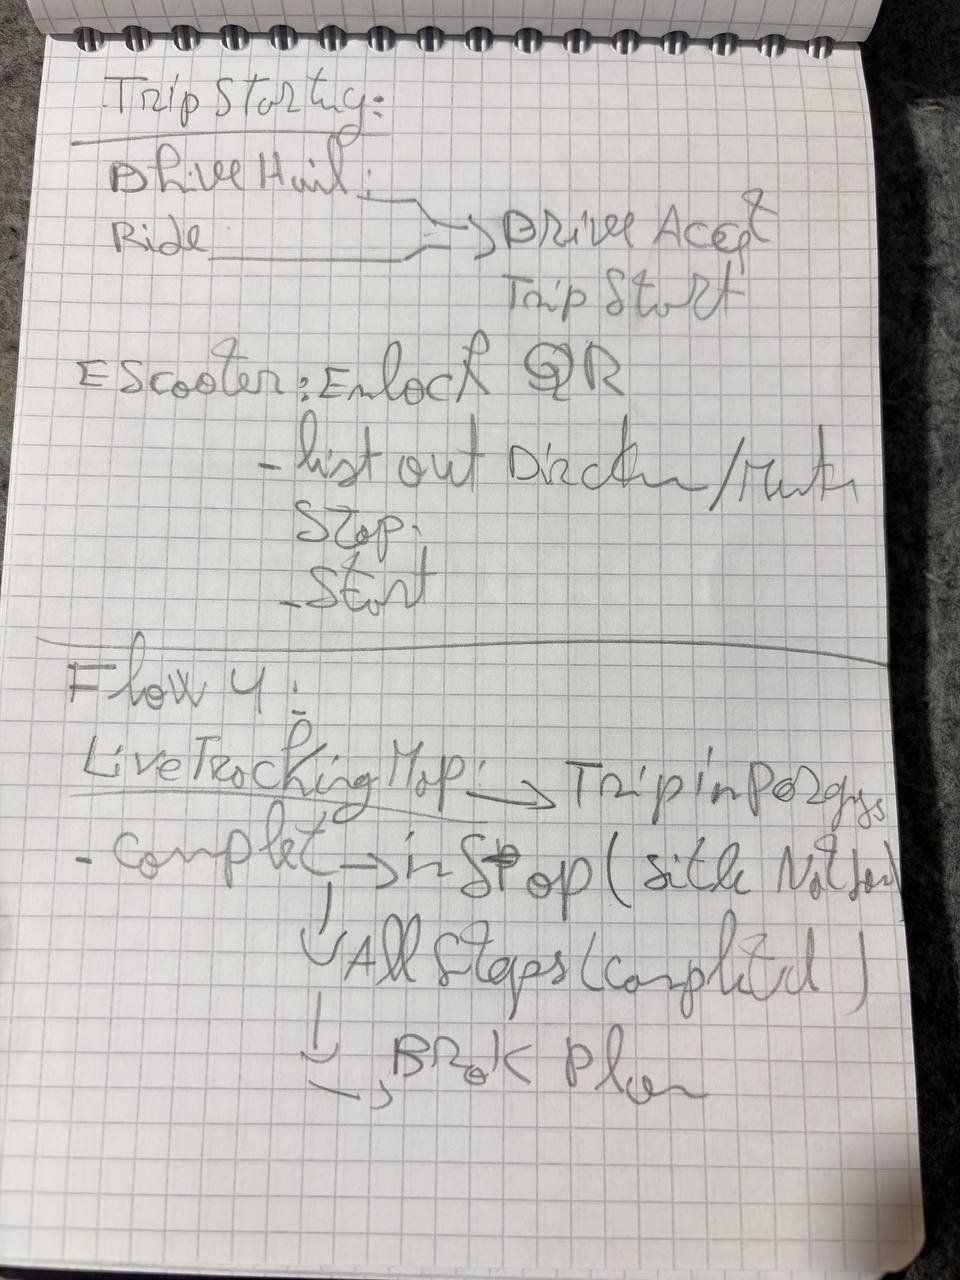 Trip Starting:
Drive Hail:
Ride → Drive Accept
Trip Start
EScooter: Enlock QR
- list out Direction /
Stop.
- Start
Flow 4:
Live Tracking Map: → Trip in Porgss
- Complet → in Stop (
↓ All Steps (Completed)
↓ → Plan